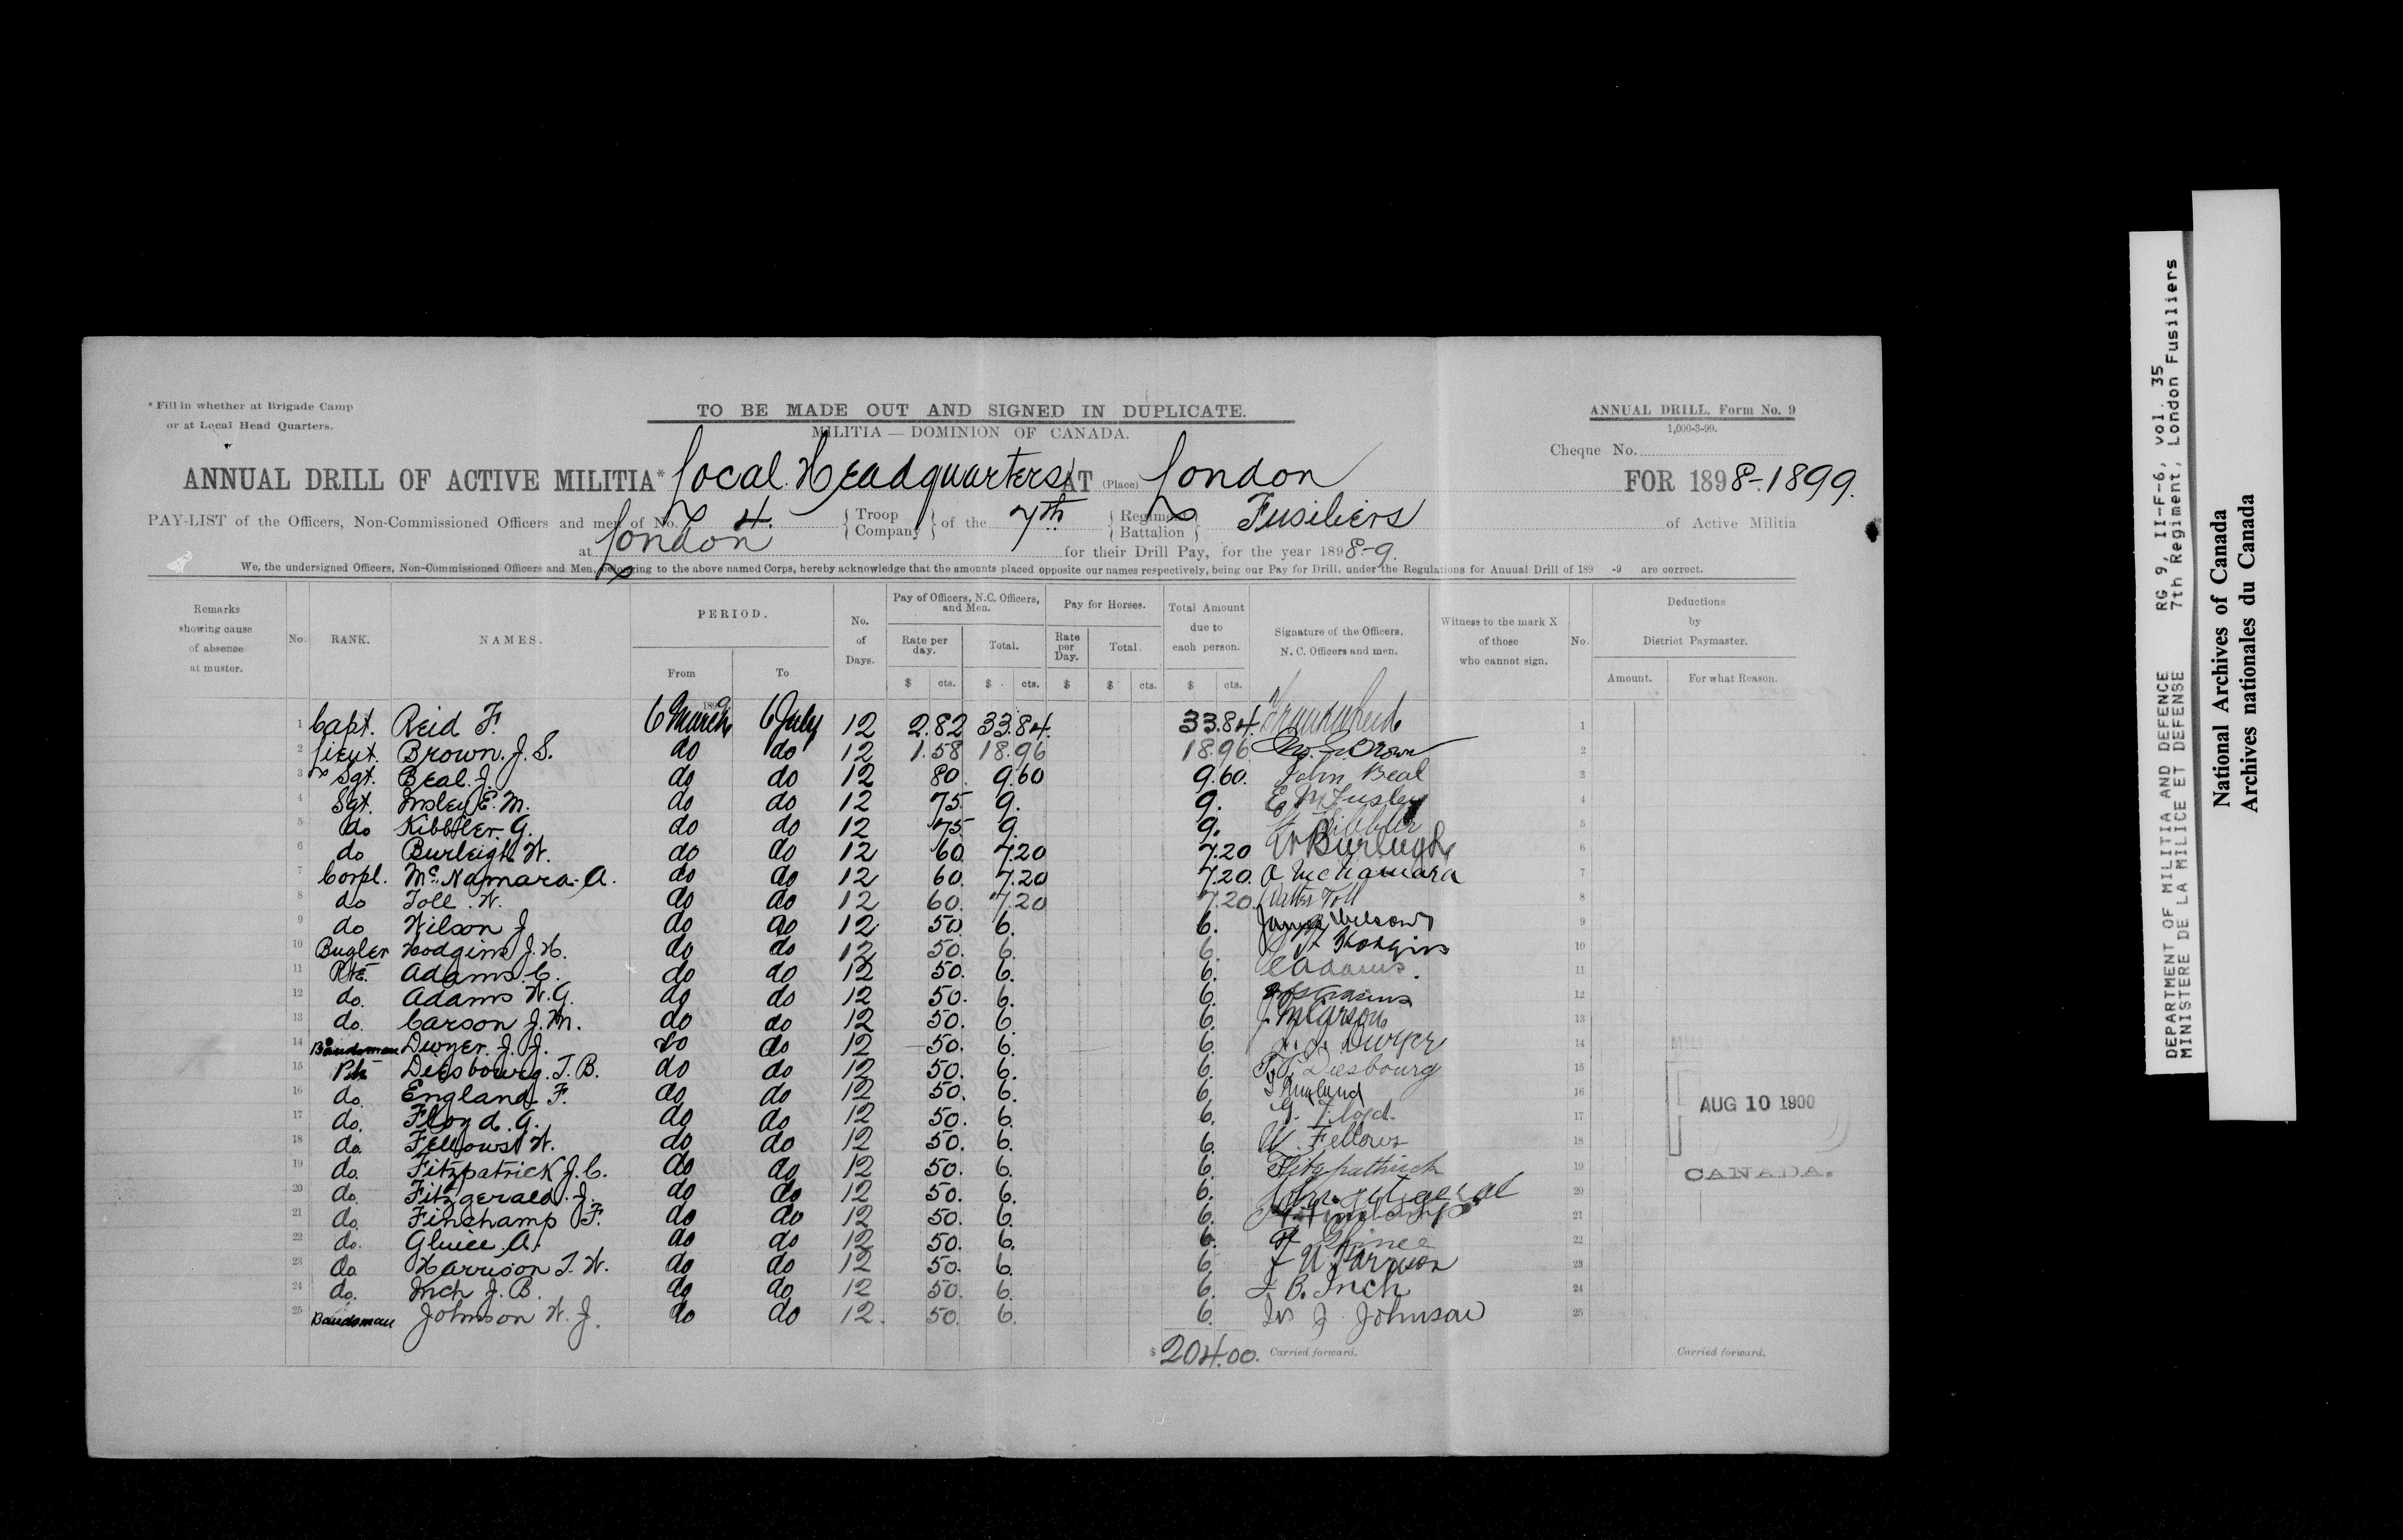 * Fill in whether at Brigade Camp
or at Local Head Quarters.
TO BE MADE OUT AND SIGNED IN DUPLICATE.
MILITIA — DOMINION OF CANADA.
ANNUAL DRILL, Form No. 9
1,000-3-99.
Cheque No.
ANNUAL DRILL OF ACTIVE MILITIA* Local Headquarters AT (Place) London FOR 1898-1899.
PAY-LIST of the Officers, Non-Commissioned Officers and men of No. 4. { Troop Company } of the 7th { Regiment Battalion } Fusiliers of Active Militia
at London for their Drill Pay, for the year 1898-9.
We, the undersigned Officers, Non-Commissioned Officers and Men, belonging to the above named Corps, hereby acknowledge that the amounts placed opposite our names respectively, being our Pay for Drill, under the Regulations for Annual Drill of 189 -9 are correct.
Remarks showing cause of absence at muster. No. RANK. NAMES. PERIOD. From To No. of Days. Pay of Officers, N.C. Officers, and Men. Rate per day. Total. Pay for Horses. Rate per Day. Total. Total Amount due to each person. Signature of the Officers, N. C. Officers and men. Witness to the mark X of those who cannot sign. No. Deductions by District Paymaster. Amount. For what Reason.
$ cts. $ cts. $ $ cts. $ cts.
1899
1 Capt. Reid F. 6 March 6 July 12 2.82 33.84. 33.84. 1
2 Lieut. Brown. J. S. do do 12 1.58 18.96 18.96 Brown 2
3 Sgt. Beal. J. do do 12 80. 9.60 9.60. John Beal 3
4 Sgt. Insley E. M. do do 12 75 9. 9. E M Insley 4
5 do Kibbler. G. do do 12 75 9. 9. Kibbler 5
6 do Burleigh W. do do 12 60. 7.20 7.20 W Burleigh 6
7 Corpl. McNamara. A. do do 12 60. 7.20 7.20. A McNamara 7
8 do Toll. W. do do 12 60. 7.20 7.20. Walter Toll 8
9 do Wilson J do do 12 50. 6. 6. James Wilson 9
10 Bugler Hodgins J. H. do do 12 50. 6. 6. J H Hodgins 10
11 Pte. Adams. C. do do 12 50. 6. 6. C Adams. 11
12 do. Adams W. G. do do 12 50. 6. 6. Adams 12
13 do. Carson J. M. do do 12 50. 6. 6. J M Carson 13
14 Bandsman Dwyer. J. J. do do 12 50. 6. 6. J. J. Dwyer 14
15 Pte Diesbourg. T. B. do do 12 50. 6. 6. Diesbourg 15
16 do. England F. do do 12 50. 6. 6. F England 16
17 do. Floyd. G. do do 12 50. 6. 6. G. Floyd. 17
18 do. Fellows W. do do 12 50. 6. 6. W. Fellows 18
19 do. Fitzpatrick J. C. do do 12 50. 6. 6. Fitzpatrick 19
20 do. Fitzgerald. J. do do 12 50. 6. 6. 20
21 do. Finchamp F. do do 12 50. 6. 6. 21
22 do. A. do do 12 50. 6. 6. 22
23 do. Harrison T. W. do do 12 50. 6. 6. Harrison 23
24 do. Inch J. B. do do 12 50. 6. 6. J. B. Inch 24
25 Bandsman Johnson W. J. do do 12. 50. 6. 6. W J Johnson 25
$ 204.00. Carried forward. Carried forward.
AUG 10 1900
CANADA.
DEPARTMENT OF MILITIA AND DEFENCE RG 9, II-F-6, vol. 35
MINISTERE DE LA MILICE ET DEFENSE 7th Regiment, London Fusiliers
National Archives of Canada
Archives nationales du Canada